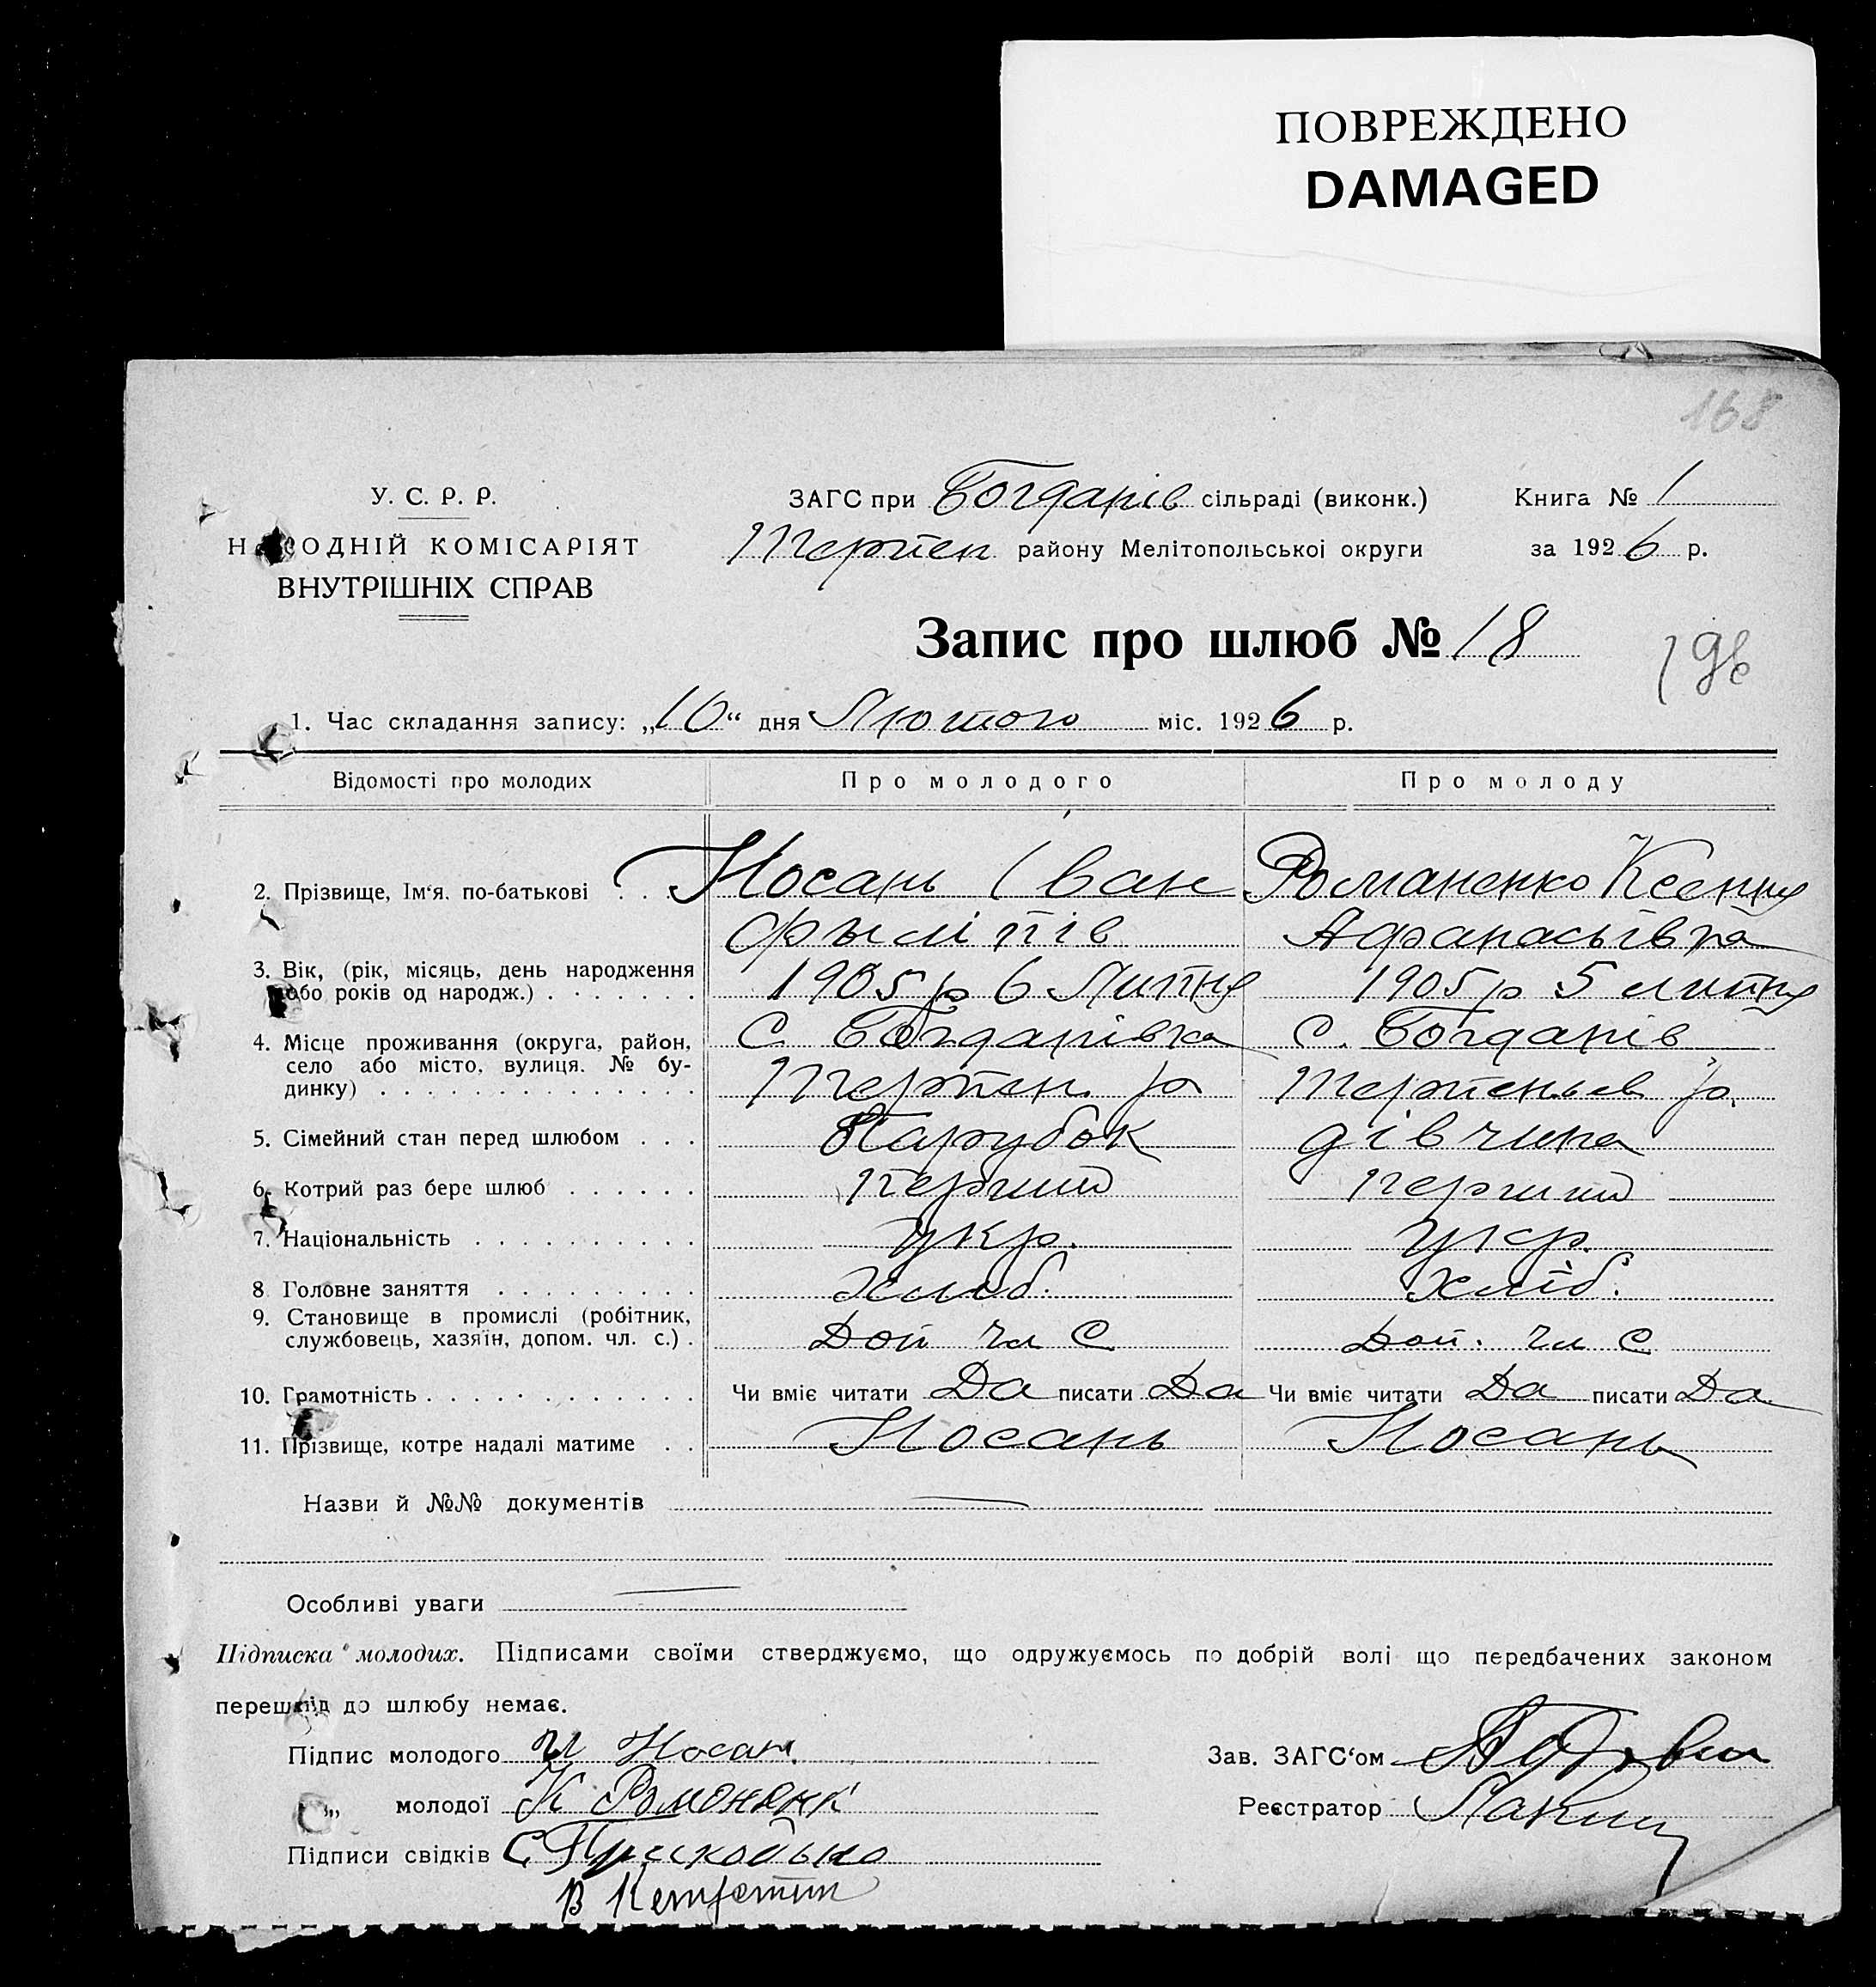 ПОВРЕЖДЕНО
DAMAGED
168
У. С. Р. Р.
НАРОДНІЙ КОМІСАРІЯТ
ВНУТРІШНІХ СПРАВ
ЗАГС при Богданів сільраді (виконк.) Книга № 1
Терпен району Мелітопольської округи за 1926 р.
Запис про шлюб № 18
196
1. Час складання запису: „10“ дня Лютого міс. 1926 р.
Відомості про молодих Про молодого Про молоду
2. Прізвище, Ім'я, по-батькові . . . Носань Іван Романенко Ксения
Филіпів Афанасьівна
3. Вік, (рік, місяць, день народження 1905 р 6 Липня 1905 р 5 липня
або років од народж.) . . . . . . .
4. Місце проживання (округа, район, С. Богданівка С. Богданів
село або місто, вулиця, № бу-
динку) . . . . . . . . . . . . . . Терпен. р Терпеньев р.
5. Сімейний стан перед шлюбом . . . Парубок дівчина
6. Котрий раз бере шлюб . . . . . . перший перший
7. Національність . . . . . . . . . . укр. укр.
8 Головне заняття . . . . . . . . . Хліб. Хліб.
9. Становище в промислі (робітник,
службовець, хазяїн, допом. чл. с.) . Доп чл С Доп. чл С
10. Грамотність . . . . . . . . . . . . Чи вміє читати Да писати Да Чи вміє читати Да писати Да
11. Прізвище, котре надалі матиме . . Носань Носань
Назви й №№ документів —
Особливі уваги —
Підписка молодих. Підписами своїми стверджуємо, що одружуємось по добрій волі що передбачених законом
перешкод до шлюбу немає.
Підпис молодого И Носан Зав. ЗАГС'ом
„ молодої К Романенк Реєстратор
Підписи свідків С Приходько
В